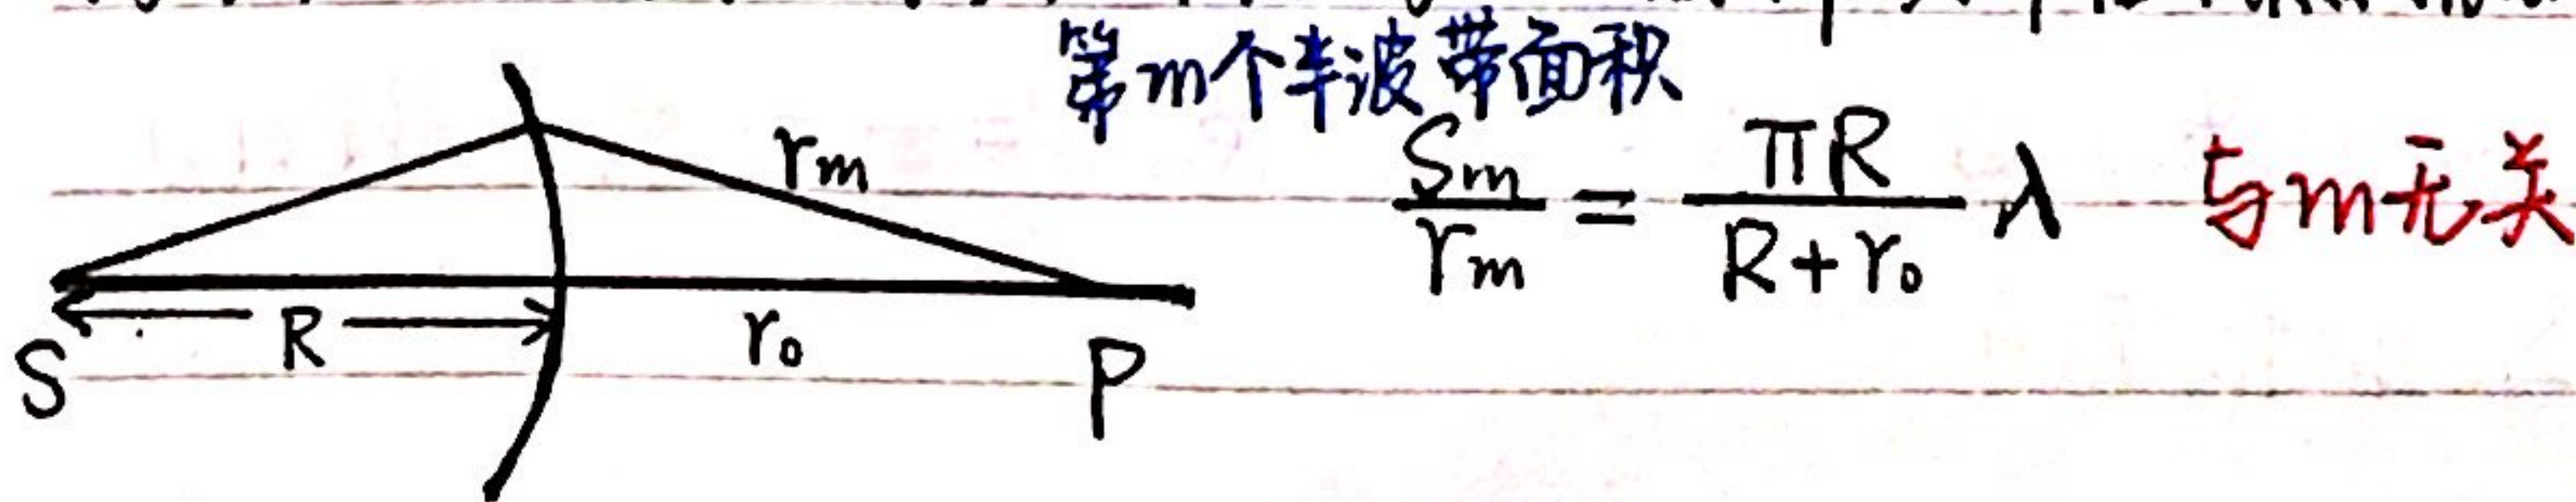 第m个半波带面积
rm
Sm/rm = πR/(R+r₀) λ 与m无关
R r₀
S P